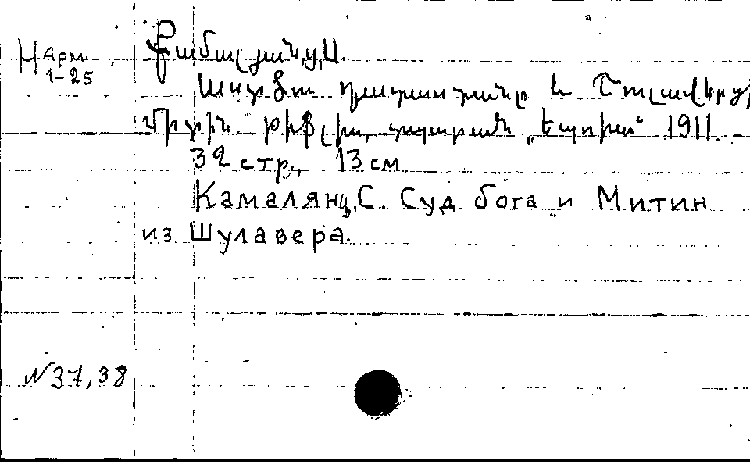 Н Арм
1-25
Քամալյանց, Ս.
Աստծու դատաստանը և Շուլավերցի
Միտին. Թիֆլիս, տպարան „Էպոխա“ 1911.
32 стр., 13 см
Камалянц, С. Суд бога и Митин
из Шулавера.
№ 37, 38